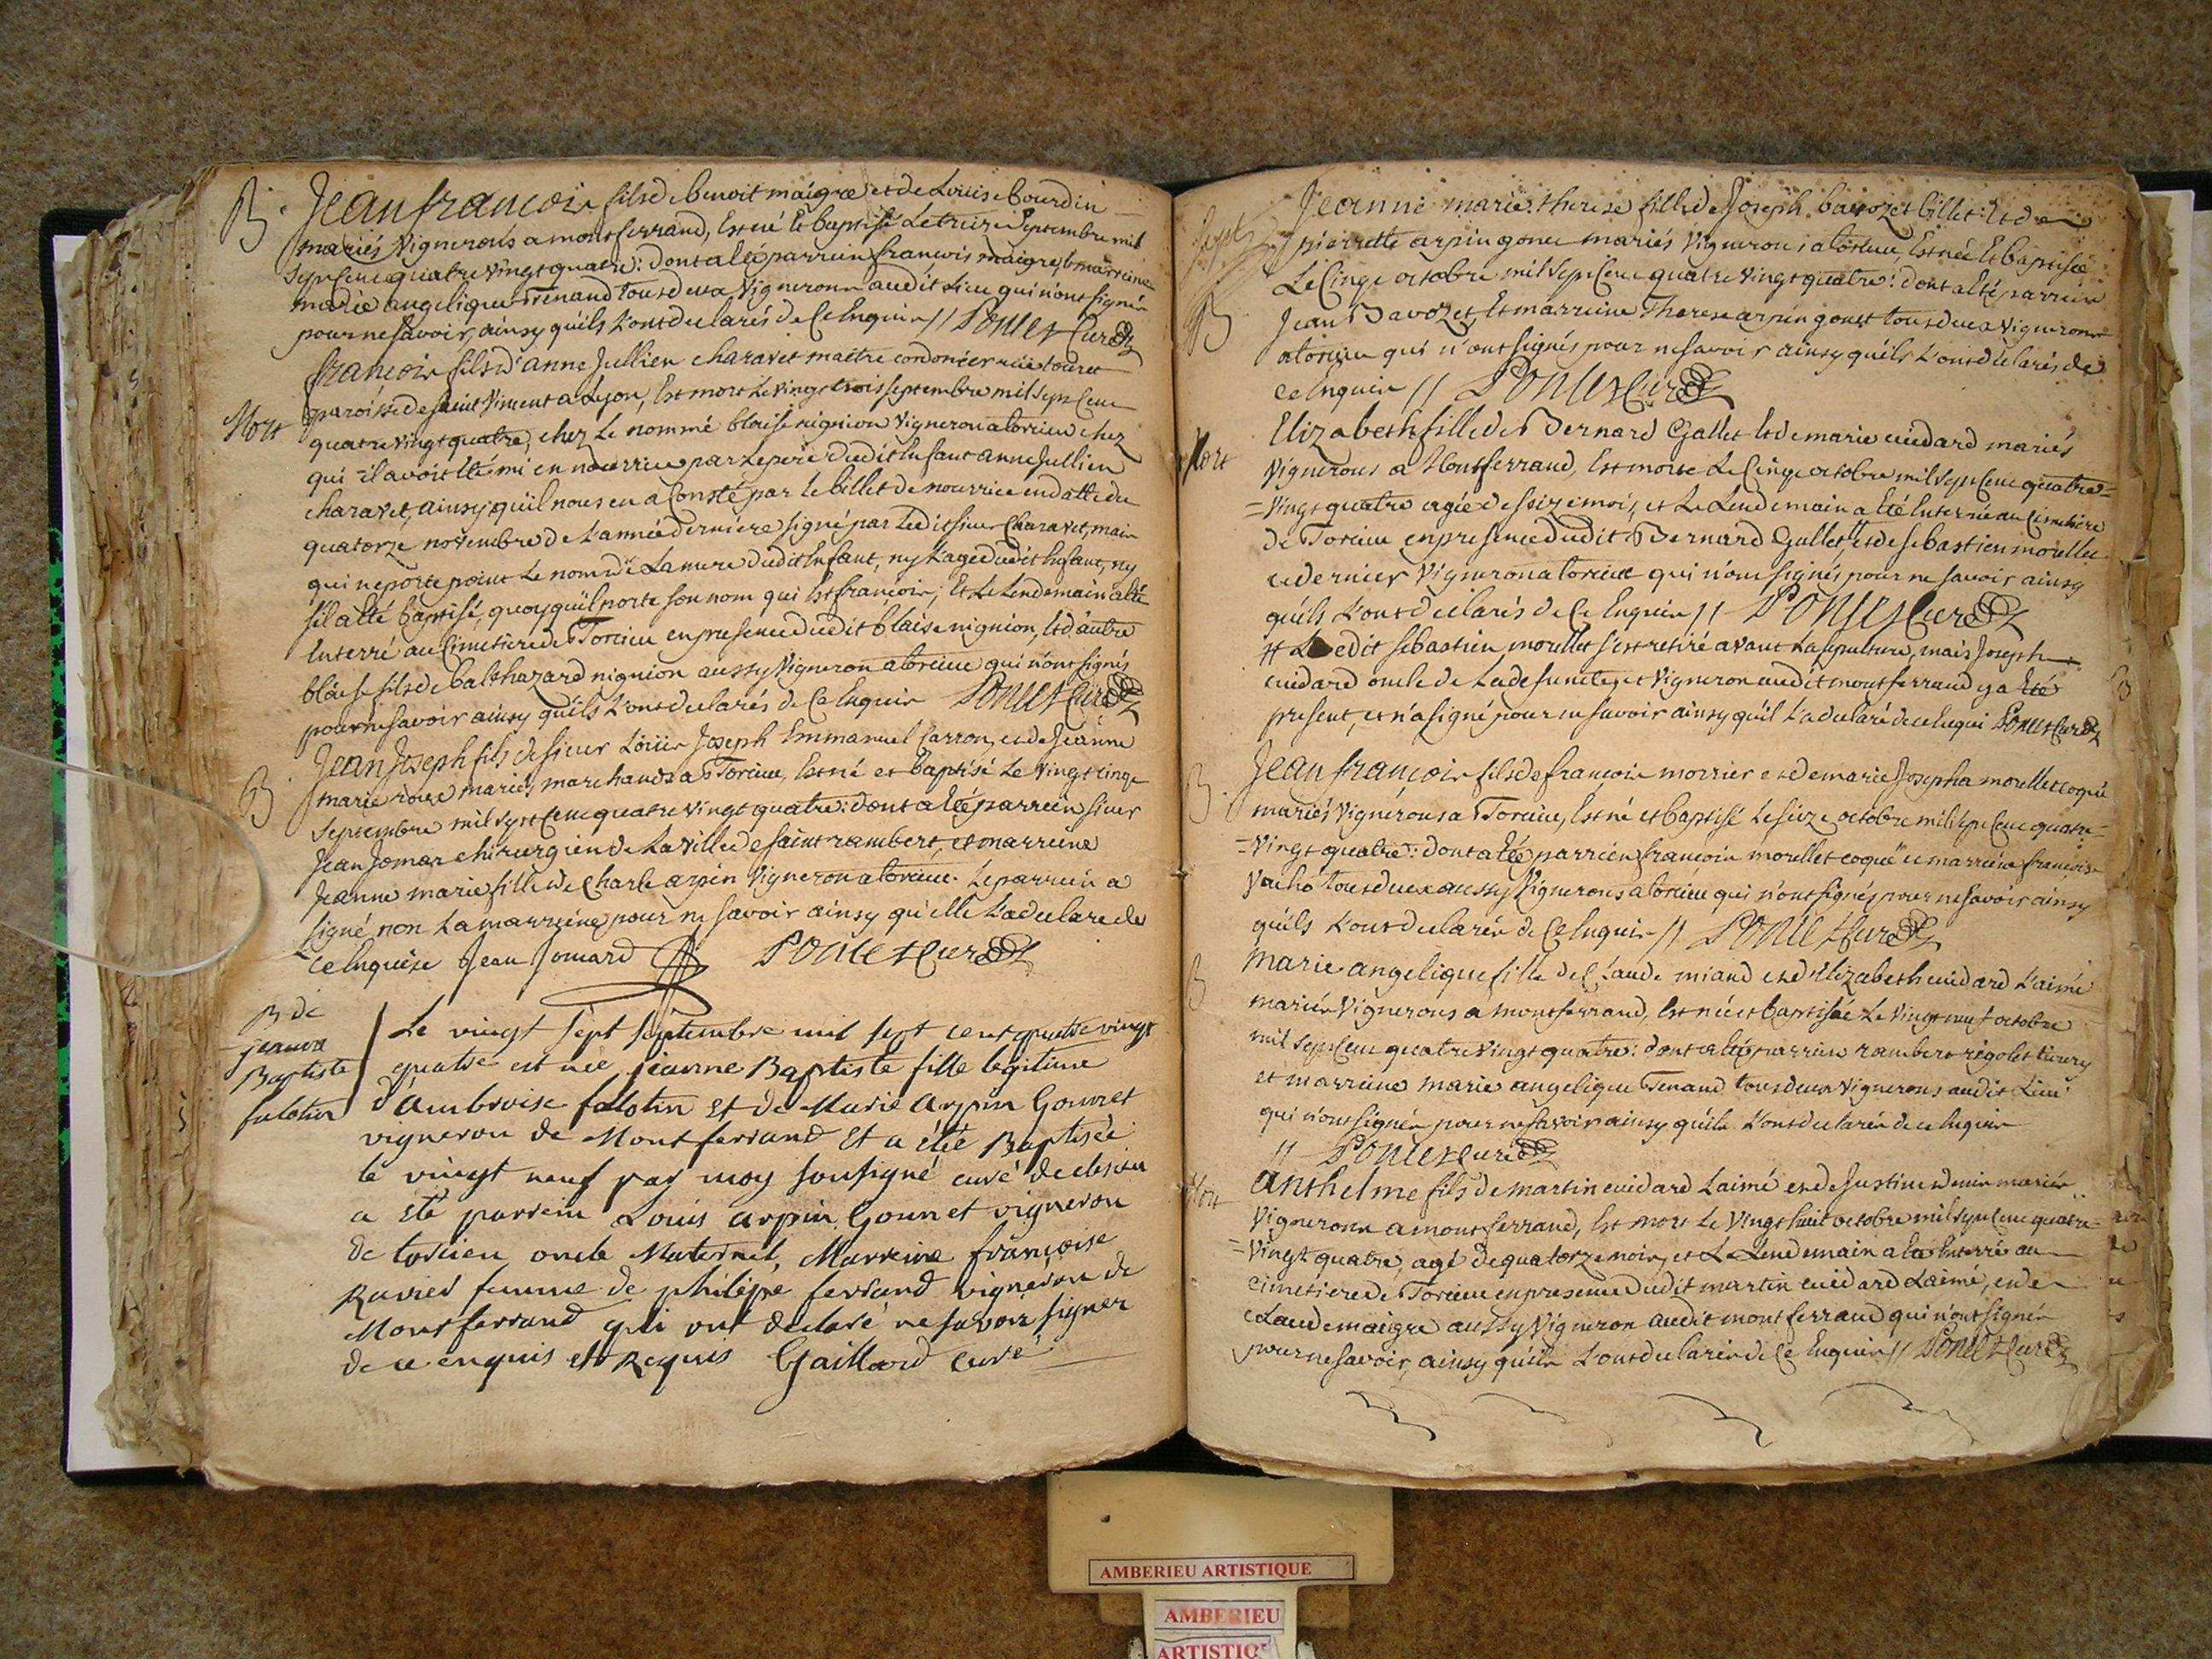 B. Jean françois fils de benoit maigre et de Louise bourdin
mariés Vignerons a montferrand, Est né Et baptisé Le treize Septembre mil
Sept Cent quatre vingt quatre: dont a eté parrein francois maigre, et marreine
marie angelique Tenand tous deux Vignerons audit Lieu qui n'ont signés
pour ne savoir, ainsy qu'ils L'ont declarés de Ce Enquis // Poncet Curé
françois fils d'anne Jullien charavet maitre cordonier rüe touret
paroisse de saint Vincent a Lyon, Est mort Le vingt trois septembre mil sept Cent
Mort
quatre vingt quatre, chez Le nommé blaise nignion Vigneron a torcieu chez
qui il avoit Eté mi en nourrice par Le pere dudit Enfant anne Jullien
charavet, ainsy qu'il nous en a Consté par le billet de nourrice en datte du
quatorze novembre de L'année derniere signé par Ledit sieur Charavet, mais
qui ne porte point Le nom de La mere dudit Enfant, ny L'age dudit Enfant, ny
s'il a été baptisé, quoy qu'il porte son nom qui Est francois; Et Le Lendemain a Eté
Enterré au Cimetiere de Torcieu en presence dudit blaise nignion, Et d'autre
blaise fils de balthazard nignion aussy Vigneron a torcieu qui n'ont signés
pour ne savoir ainsy qu'ils L'ont declarés de Ce Enquis Poncet Curé
Jean Joseph fils de sieur Loüis Joseph Emmanuel Carron, et de Jeanne
B
marie mariés, marchands a Torcieu, Est né et baptisé Le Vingt cinq
Septembre mil Sept Cent quatre vingt quatre: dont a Eté parrein sieur
Jean Jomar chirurgien de La Ville de saint rambert, et marreine
Jeanne marie fille de Charle arpin Vigneron a torcieu. Le parrein a
signé non La marreine pour ne savoir ainsy qu'elle L'a declaré de
Ce Enquise Jean Jomard Poncet Curé
B de
jeanne
Baptiste
falotin
Le vingt sept septembre mil sept cent quatre vingt
quatre est née jeanne Baptiste fille legitime
d'ambroise falotin et de Marie arpin Gonnet
vigneron de Montferrand et a été Baptisée
le vingt neuf par moy soussigné curé de
a été parrein Louis arpin Gonnet vigneron
de torcieu oncle Maternel, Marreine françoise
Ravier femme de philippe ferrand vigneron de
Montferrand qui ont declaré ne savoir signer
de ce enquis et Requis Gaillard curé
Jeanne marie therese fille de Joseph bavozet billet Et de
Sept
pierrette arpin gonet mariés Vignerons a torcieu, Est née Et baptisée
Le Cinq octobre mil Sept Cent quatre vingt quatre: dont a Eté parrein
B
Jean Bavozet, Et marreine Therese arpin gonet tous deux Vignerons
a torcieu qui n'ont signés pour ne savoir ainsy qu'ils L'ont declarés de
Ce Enquis // Poncet Curé
Elizabeth fille de Bernard Gallet Et de marie cuidard mariés
Mort
Vignerons a Montferrand, Est morte Le Cinq octobre mil Sept Cent quatre=
=Vingt quatre agée de seize mois, et Le Lendemain a Eté Enterrée au Cimetiere
de Torcieu en presence dudit Bernard Gallet, et de sebastien morellet
ce dernier Vigneron a torcieu qui n'ont signés pour ne savoir ainsy
qu'ils L'ont declarés de Ce Enquis // Poncet Curé
# Ledit sebastien morellet s'est retiré avant La sepulture, mais Joseph
cuidard oncle de Ladefuncte, et Vigneron audit montferrand y a Eté
present, et n'a signé pour ne savoir ainsy qu'il L'a declaré de ce Enquis Poncet Curé
Jean françois fils de françois morrier et de marie Josepha morellet coqué
B
mariés Vignerons a Torcieu, Est né et baptisé Le seize octobre mil Sept Cent quatre=
=Vingt quatre: dont a Eté parrein francois morellet coqué et marreine francoise
Vacho tous deux aussy Vignerons a torcieu qui n'ont signés pour ne savoir ainsy
qu'ils L'ont declarés de Ce Enquis // Poncet Curé
B Marie angelique fille de Claude miand et d'Elizabeth cuidard L'aimé
mariés Vignerons a montferrand, Est née et baptisée Le Vingt neuf octobre
mil Sept Cent quatre vingt quatre: dont a Eté parrein rambert rigolet
et marreine marie angelique Tenand tous deux Vignerons audit Lieu
qui n'ont signés pour ne savoir ainsy qu'ils L'ont declarés de ce Enquis
// Poncet Curé
Mort
Anthelme fils de martin cuidard L'aimé et de Justine mariés
Vignerons a montferrand, Est mort Le Vingt huit octobre mil Sept Cent quatre=
=Vingt quatre, agé de quatorze mois, et Le Lendemain a Eté Enterré au
cimetiere de Torcieu en presence dudit martin cuidard L'aimé, et de
Claude maigre aussy Vigneron audit montferrand qui n'ont signés
pour ne savoir, ainsy qu'ils L'ont declarés de Ce Enquis // Poncet Curé
AMBERIEU ARTISTIQUE
AMBERIEU